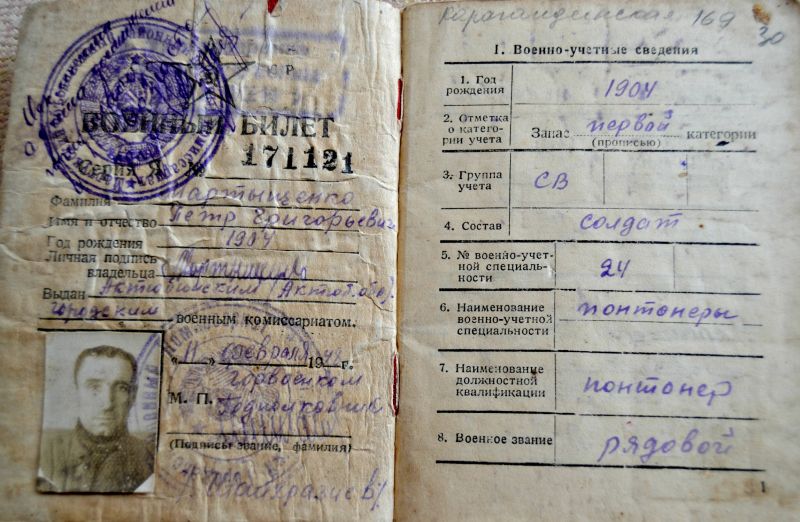 ВОЕННЫЙ БИЛЕТ
Серия Я № 171121
Фамилия Мартыщенко
Имя и отчество Петр Григорьевич
Год рождения 1904
Личная подпись
владельца
Выдан Актюбинским (Актюб. обл.)
городским военным комиссариатом.
„11" февраля 19 г.
Горвоенком
М. П. Подполковник
(Подпись, звание, фамилия)
Карагандинская 169
30
1. Военно-учетные сведения
1. Год рождения 1904
2. Отметка о категории учета Запас первой категории
(прописью)
3. Группа учета СВ
4. Состав солдат
5. № военно-учетной специальности 24
6. Наименование военно-учетной специальности понтонеры
7. Наименование должностной квалификации понтонер
8. Военное звание рядовой
1